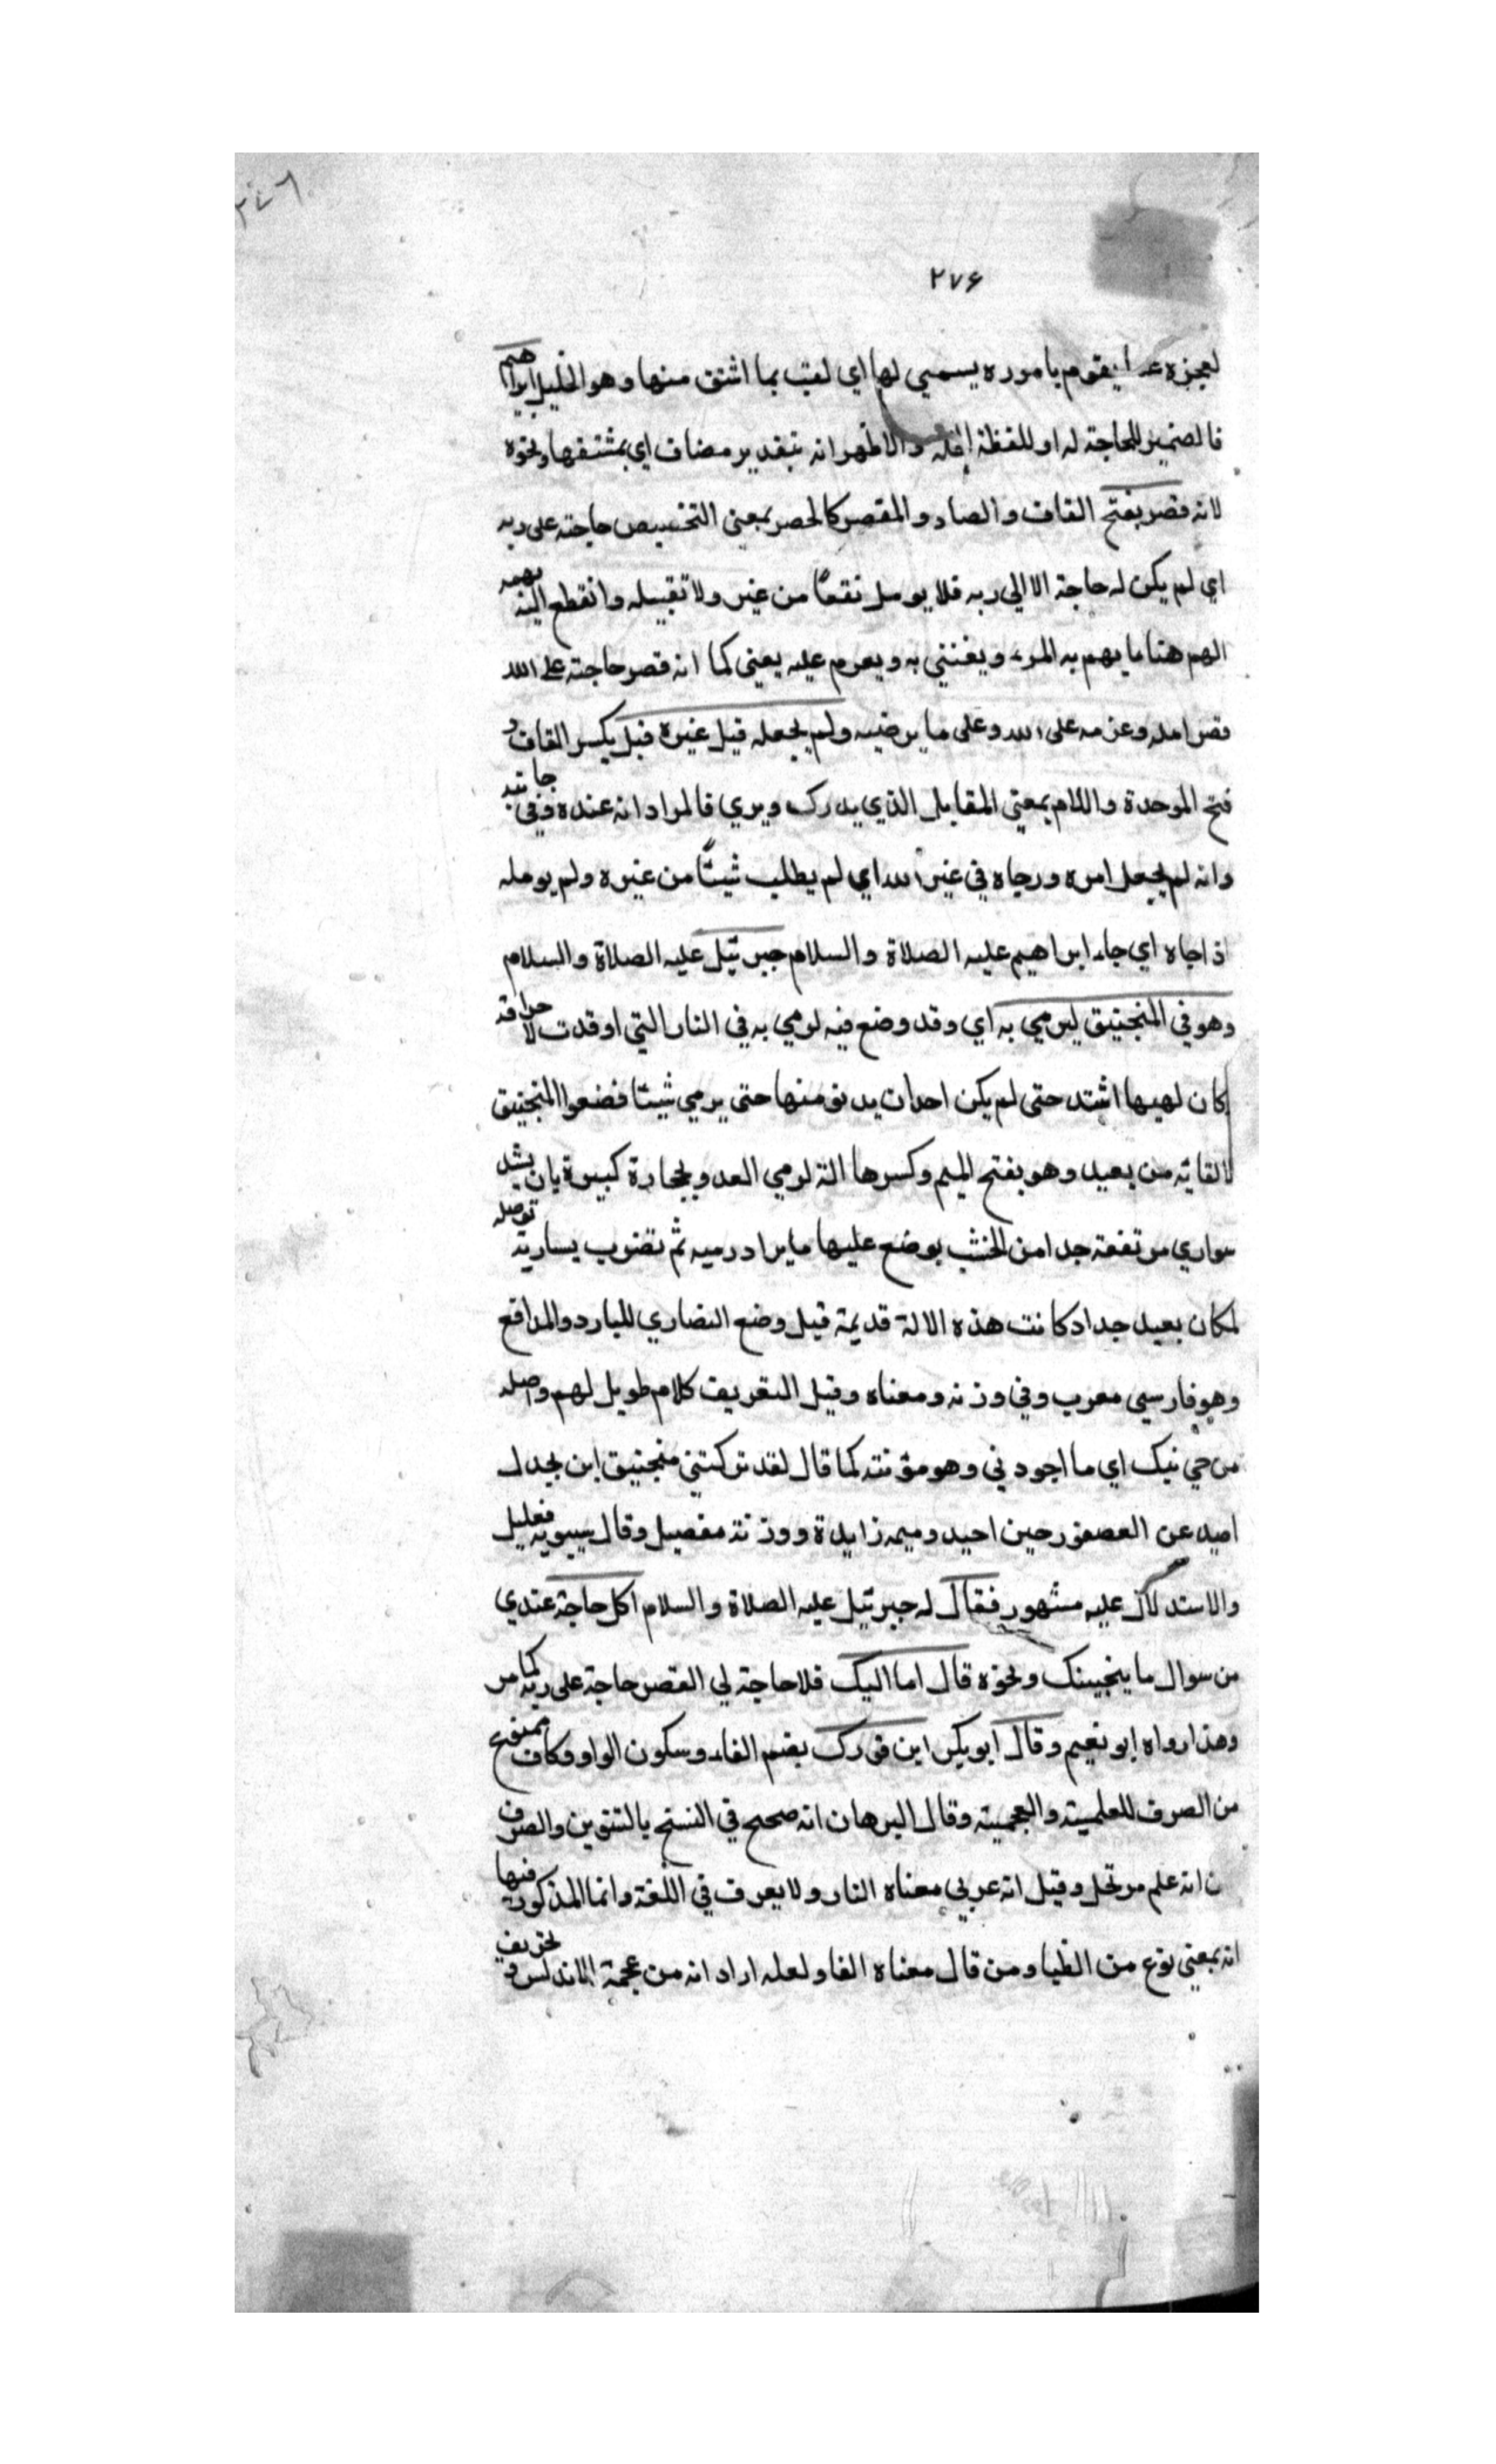 ٢٧٦
٢٧۶
لعجزه عما يقوم باموره يسمي لها اي لقب بما اشتق منها وهو الخليل ابراهيم
فالضمير للحاجة له او للفظة والاظهر انه بتقدير مضاف اي بمشتقها ونحوه
لانه قصر بفتح القاف والصاد والقصر كالحصر بمعنى التخصيص حاجته على ربه
اي لم يكن له حاجة الا الي ربه فلا يومل نفعًا من غير ولا تقبيله وانقطع اليه بهمه
الهم هنا ما يهم به المرء ويعتني به ويعزم عليه يعني كما انه قصر حاجته على الله
قصر امله وعزمه على الله وعلى ما يرضيه ولم يجعله قبل غيره قبل بكسر القاف و
فتح الموحدة واللام بمعني المقابل الذي يدرك ويري فالمراد انه عنده وفي جانبه
وانه لم يجعل امره ورجاه في غير الله اي لم يطلب شيئًا من غيره ولم يومله
اذ اجاه اي جاء ابراهيم عليه الصلاة والسلام جبرئيل عليه الصلاة والسلام
وهو في المنجنيق ليرمي به اي وقد وضع فيه لرمي به في النار التي اوقدت لاحراقه
كان لهبها اشتد حتى لم يكن احدان يدنو منها حتى يرمي شيئا فضعوا المنجنيق
لالقائه من بعيد وهو بفتح الميم وكسرها الة لرمي العدو بحجارة كبيرة بان يشد
سواري مرتفعة جدا من الخشب يوضع عليها ما يراد رميه ثم تضرب بسارية توصله
لمكان بعيد جدا وكانت هذه الالة قديمة قبل وضع النصاري للبارد والمدافع
وهو فارسي معرب وفي وزنه ومعناه وقبل التعريف كلام طويل لهم واصله
من جي نيك اي ما اجودني وهو مؤنثه كما قال لقد تركتني منجنيق ابن بجدل
احيد عن العصفور حين احيد وميمه زايدة ووزنه مفصيل وقال سيبويه فعليل
والاستدلال عليه مشهور فقال له جبرئيل عليه الصلاة والسلام اكل حاجة عندي
من سوال ما ينجينك ونحوه قال اما اليك فلا حاجة لي القصر حاجة على ربه كما مر
وهذا رواه ابو نعيم وقال ابو بكر ابن فورك بضم الفاء وسكون الواو وكاف ممنوع
من الصرف للعلمية والعجمية وقال البرهان انه صحح في النسخ بالتنوين والصرف
ن انه علم مرتجل وقيل انه عربي معناه النار ولا يعرف في اللغة وانما المذكور فيها
انه بمعني نوع من الظبا ومن قال معناه الفا ولعله اراد انه من عجمة الاندلس و تحريف